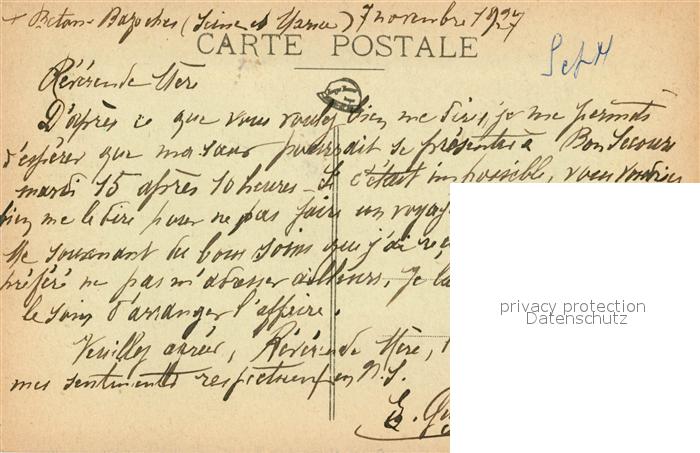 + Beton-Bazoches (Seine et Marne) 7 novembre 1927
CARTE POSTALE
Révérende Mère
D'après ce que vous voulez bien me dire, je me permets
d'espérer que ma sœur pourrait se présenter à Bon Secours
mardi 15 après 10 heures - Si c'était impossible, vous voudriez
bien me le dire pour ne pas faire un voyag
Me souvenant du bons soins que j'ai re
préféré ne pas m'adresser ailleurs. Je
le soin d'arranger l'affaire.
Veuillez agréer, Révérende Mère,
mes sentiments respectueux en N.S.
E.
privacy protection
Datenschutz